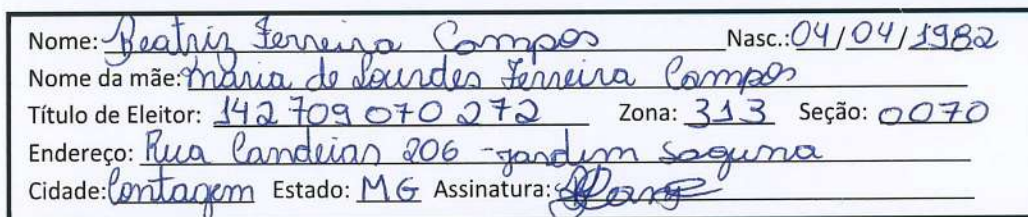 Nome: Beatriz Ferreira Campos Nasc.: 04/04/1982
Nome da mãe: Maria de Lourdes Ferreira Campos
Título de Eleitor: 142709070272 Zona: 313 Seção: 0070
Endereço: Rua Candeias 206 - Jardim Laguna
Cidade: Contagem Estado: MG Assinatura: